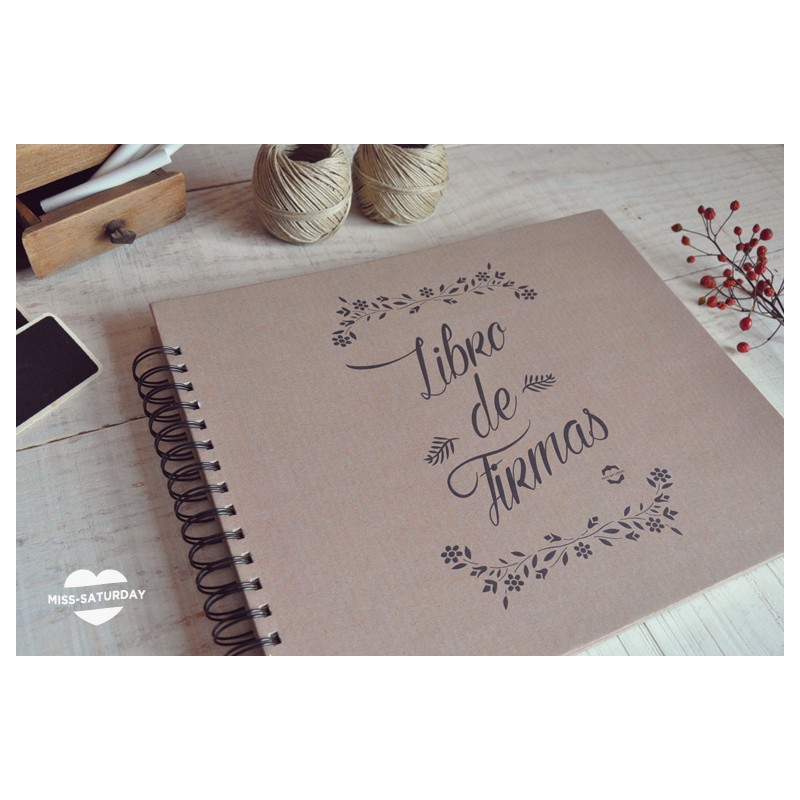 Libro
de
Firmas
MISS-SATURDAY